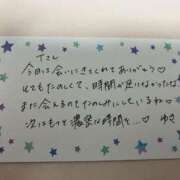 Tさん
今日は会いにきてくれてありがとう♡
とてもたのしくて、時間が足りなかったな
また会えるのをたのしみにしているね♡
次はもっと濃密な時間を… ゆき♡